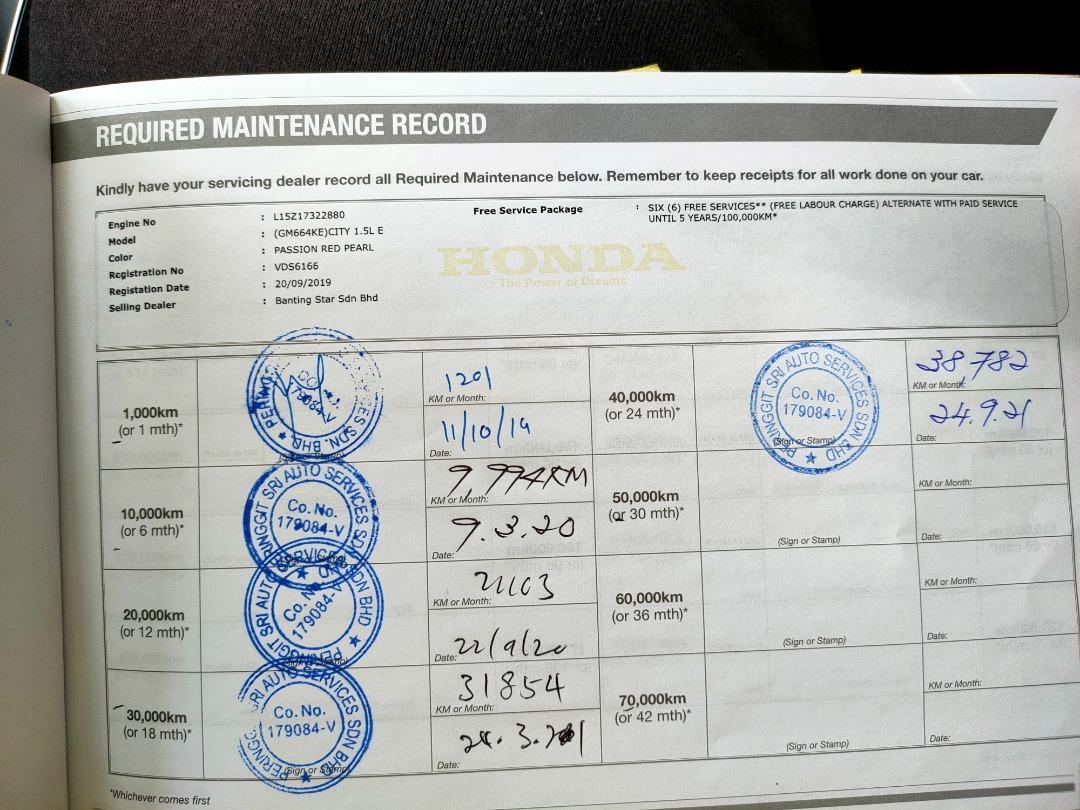 REQUIRED MAINTENANCE RECORD
Kindly have your servicing dealer record all Required Maintenance below. Remember to keep receipts for all work done on your car.
Engine No : L15Z17322880
Model : (GM664KE)CITY 1.5L E
Color : PASSION RED PEARL
Registration No : VDS6166
Registation Date : 20/09/2019
Selling Dealer : Banting Star Sdn Bhd
Free Service Package : SIX (6) FREE SERVICES** (FREE LABOUR CHARGE) ALTERNATE WITH PAID SERVICE
UNTIL 5 YEARS/100,000KM*
HONDA
The Power of Dreams
1,000km
(or 1 mth)*
179084-V
SDN. BHD.
1201
KM or Month:
11/10/19
Date:
10,000km
(or 6 mth)*
PERINGGIT SRI AUTO SERVICES SDN BHD
Co. No.
179084-V
9.994KM
KM or Month:
9.3.20
Date:
20,000km
(or 12 mth)*
PERINGGIT SRI AUTO SERVICES SDN BHD
Co. No.
179084-V
(Sign or Stamp)
21103
KM or Month:
22/9/20
Date:
30,000km
(or 18 mth)*
PERINGGIT SRI AUTO SERVICES SDN BHD
Co. No.
179084-V
(Sign or Stamp)
31854
KM or Month:
24.3.21
Date:
40,000km
(or 24 mth)*
PERINGGIT SRI AUTO SERVICES SDN BHD
Co. No.
179084-V
(Sign or Stamp)
38,782
KM or Month:
24.9.21
Date:
50,000km
(or 30 mth)*
(Sign or Stamp)
KM or Month:
Date:
60,000km
(or 36 mth)*
(Sign or Stamp)
KM or Month:
Date:
70,000km
(or 42 mth)*
(Sign or Stamp)
KM or Month:
Date:
*Whichever comes first